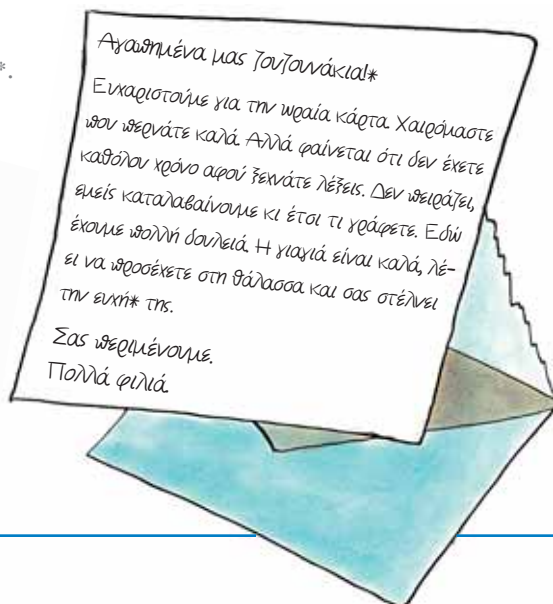 *.
Αγαπημένα μας ζουζουνάκια!*
Ευχαριστούμε για την ωραία κάρτα. Χαιρόμαστε
που περνάτε καλά. Αλλά φαίνεται ότι δεν έχετε
καθόλου χρόνο αφού ξεχνάτε λέξεις. Δεν πειράζει,
εμείς καταλαβαίνουμε κι έτσι τι γράφετε. Εδώ
έχουμε πολλή δουλειά. Η γιαγιά είναι καλά, λέ-
ει να προσέχετε στη θάλασσα και σας στέλνει
την ευχή* της.
Σας περιμένουμε.
Πολλά φιλιά